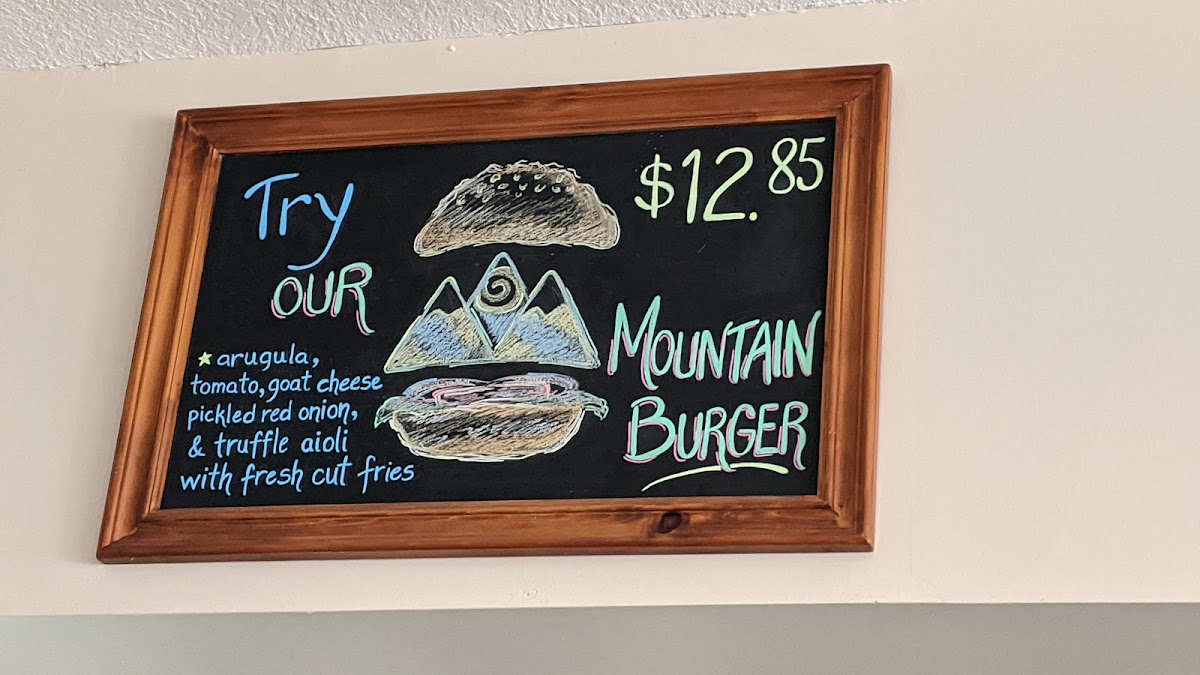 Try
OUR
$12.85
* arugula,
tomato, goat cheese
pickled red onion,
& truffle aioli
with fresh cut fries
MOUNTAIN
BURGER